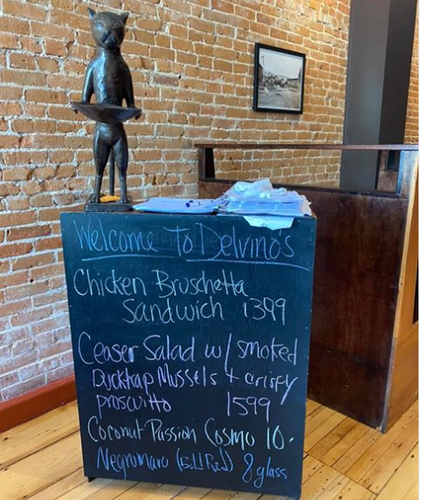 Welcome To Delvinos
Chicken Bruschetta
Sandwich 1399
Ceaser Salad w/ smoked
Ducktrap Mussels + crispy
proscuitto 1599
Coconut Passion Cosmo 10.
Negromaro (Full Red) 8 glass